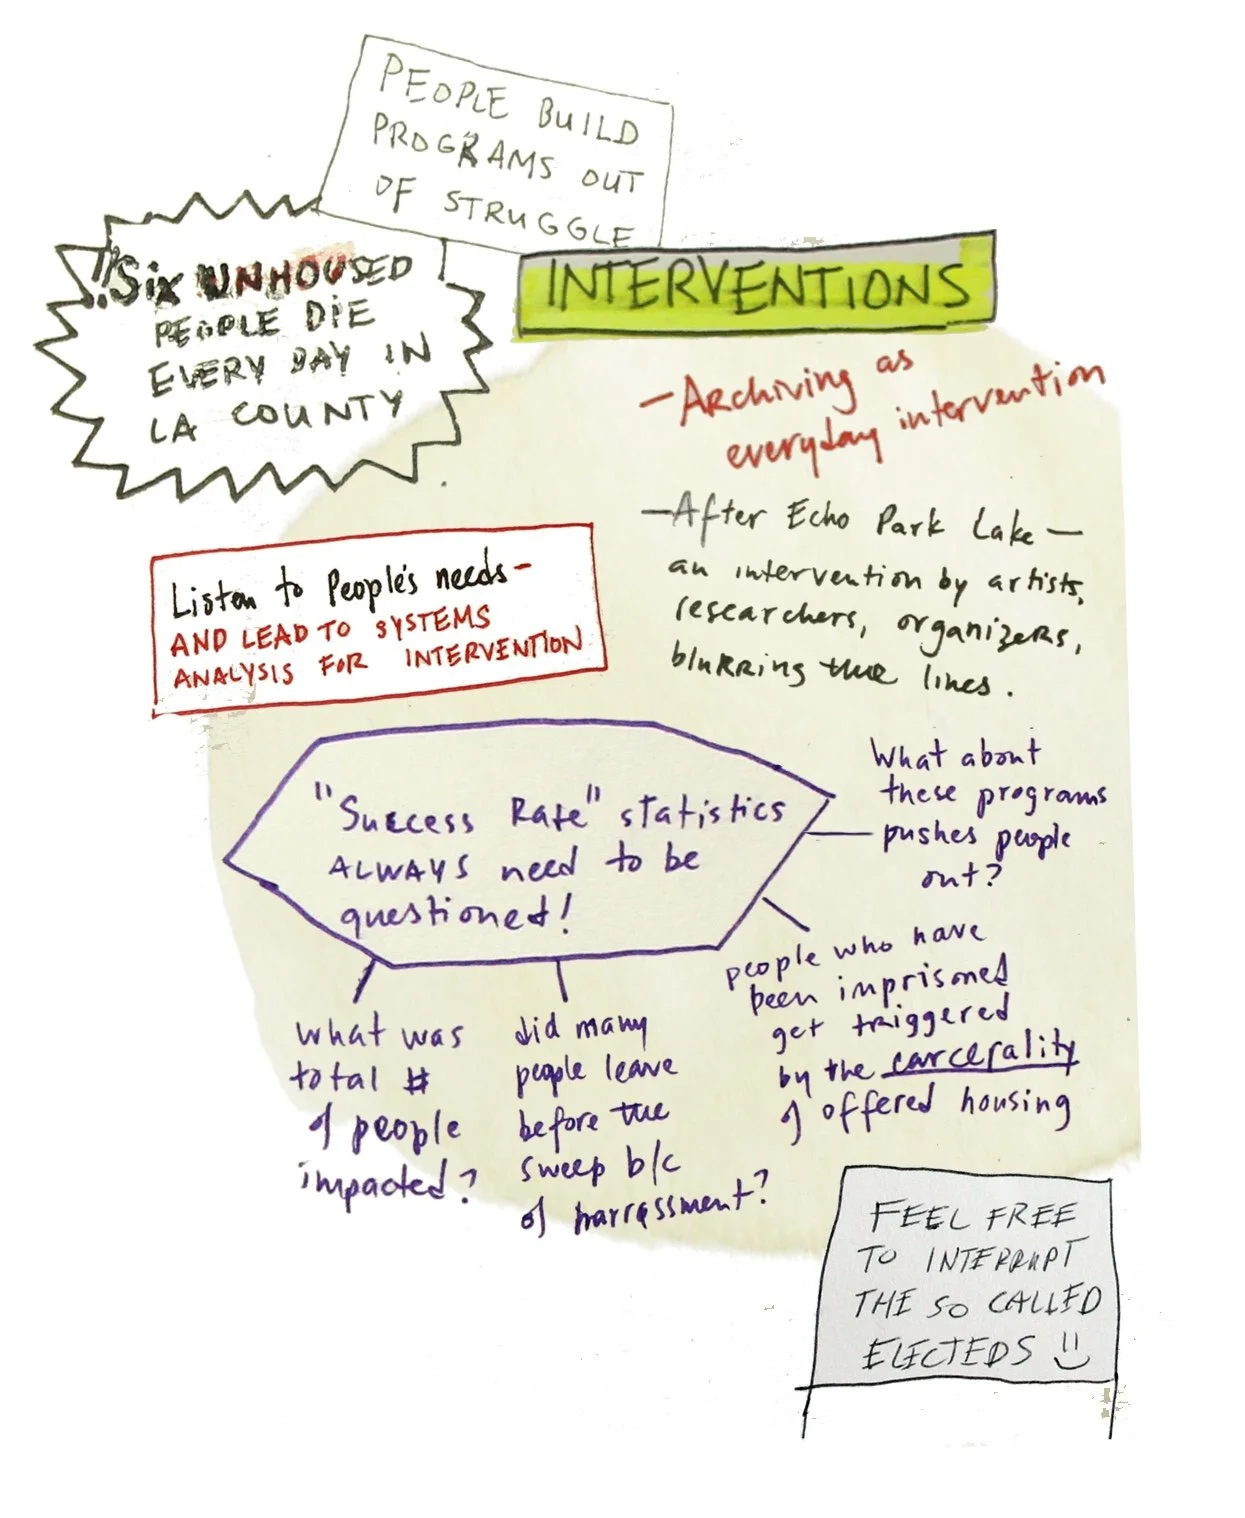 PEOPLE BUILD
PROGRAMS OUT
OF STRUGGLE
!!Six UNHOUSED
PEOPLE DIE
EVERY DAY IN
LA COUNTY
INTERVENTIONS
- Archiving as
everyday intervention
- After Echo Park Lake -
an intervention by artists,
researchers, organizers,
blurring the lines.
Listen to People's needs -
AND LEAD TO SYSTEMS
ANALYSIS FOR INTERVENTION
"Success Rate" statistics
ALWAYS need to be
questioned!
What about
these programs
pushes people
out?
people who have
been imprisoned
get triggered
by the carcerality
of offered housing
what was
total #
of people
impacted?
did many
people leave
before the
sweep b/c
of harrassment?
FEEL FREE
TO INTERRUPT
THE SO CALLED
ELECTEDS